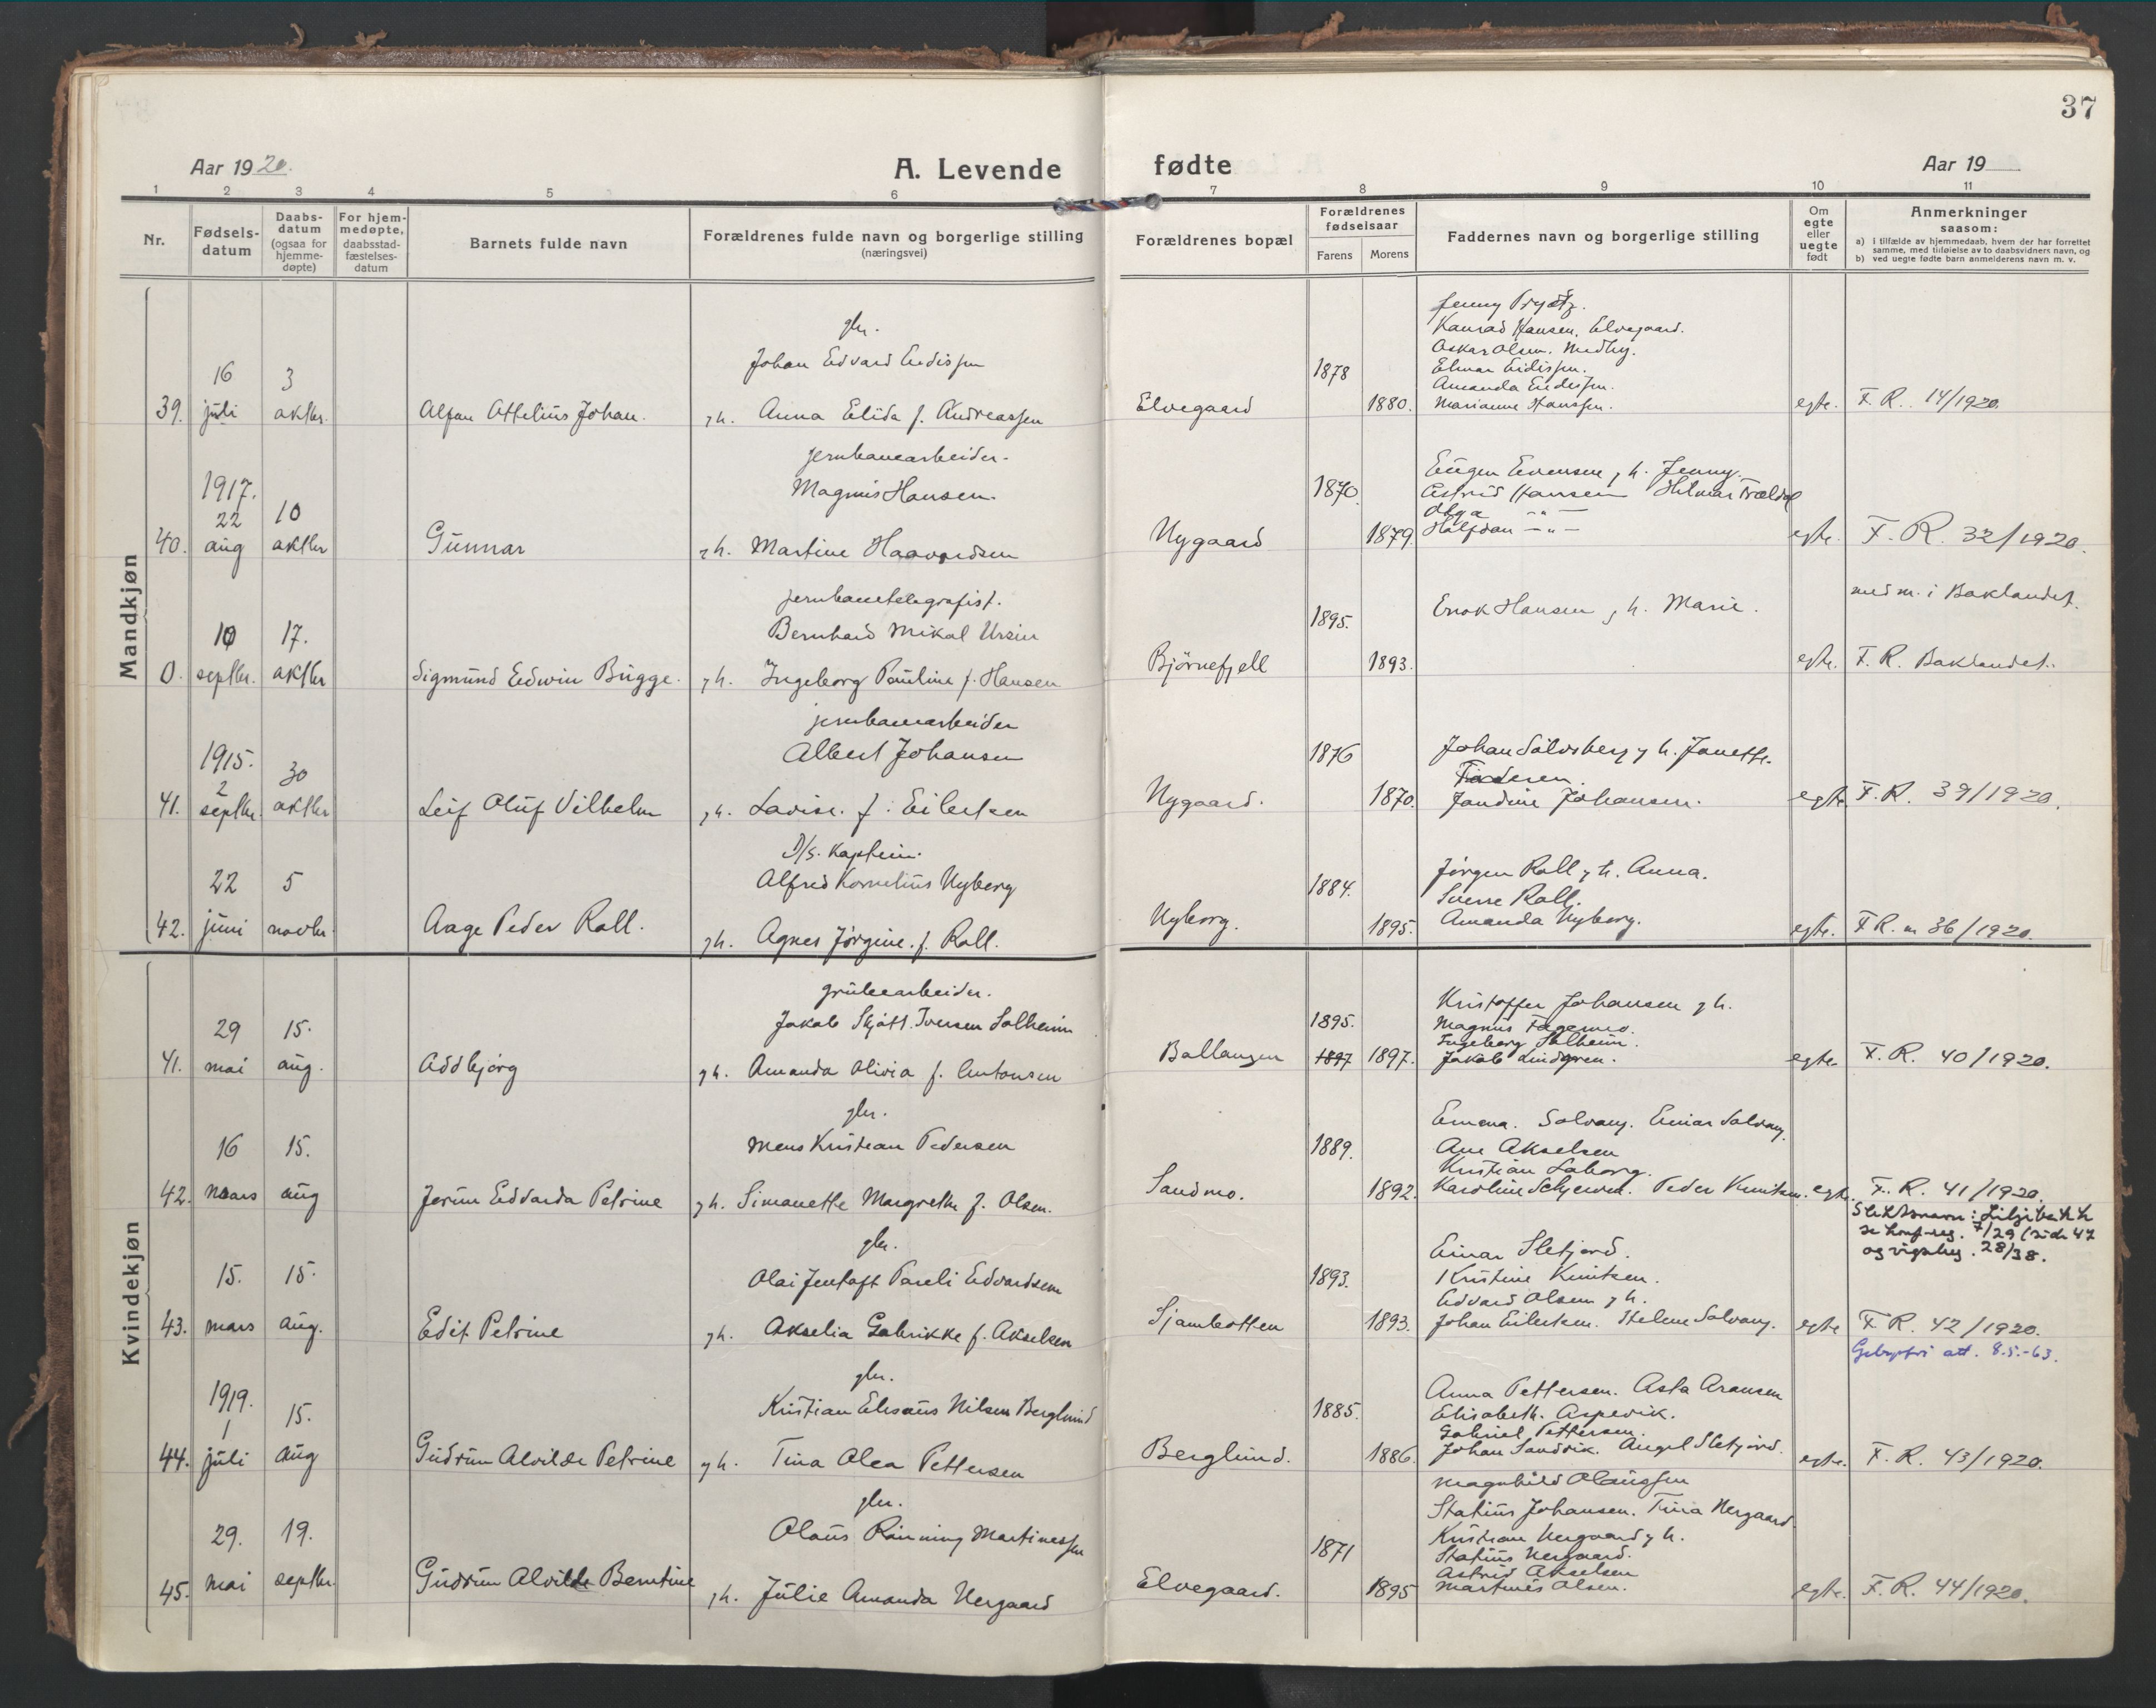 37
Aar 1920.
A. Levende fødte
Aar 19
1 2 3 4 5 6 7 8 9 10 11
Nr.
Fødselsdatum
Daabsdatum (ogsaa for hjemmedøpte)
For hjemmedøpte, daabsstadfæstelsesdatum
Barnets fulde navn
Forældrenes fulde navn og borgerlige stilling (næringsvei)
Forældrenes bopæl
Forældrenes fødselsaar
Farens Morens
Faddernes navn og borgerlige stilling
Om egte eller uegte født
Anmerkninger saasom:
a) i tilfælde av hjemmedaab, hvem der har forrettet samme, med tilføielse av to daabsvidners navn, og
b) ved uegte fødte barn anmelderens navn m. v.
Mandkjøn
39. 16 juli 3 oktbr.
gbr.
Johan Edvard Eidissen
gh. Anna Elida f. Andreassen
Elvegaard
1878 1880.
Konrad Hansen, Elvegaard.
Oskar Olsen. Medby.
Elmar Eidissen.
Amanda Eidissen.
Marianne Hanssen.
egte. F. R. 14/1920.
40. 1917. 22 aug 10 oktbr
Gunnar
jernbanearbeider.
Magnus Hansen.
gh. Martine Haavardsen
Nygaard
1870. 1879.
Eugen Evensen g h. Jenny.
Astrid Hansen Hilmar Trældal
Olga —"—
Halfdan —"—
egte. F. R. 32/1920.
0. 10 septbr. 17. oktbr
Sigmund Edwin Bugge.
jernbanetelegrafist.
Bernhard Mikal Ursin
gh. Ingeborg Pauline f. Hansen
Bjørnefjell
1895. 1893.
Enok Hansen g h. Marie.
egte. medm. i Baklandet.
F. R. Baklandet.
41. 1915. 2 septbr. 30 oktbr
Leif Oluf Vilhelm
jernbanearbeider
Albert Johansen
gh. Lovise. f. Eilertsen
Nygaard.
1876 1870.
Johan Sølvsberg g h. Janette.
Faderen.
Jandine Johansen.
egte F. R. 39/1920.
42. 22 juni 5 novbr.
Aage Peder Roll.
D/s. Kaptein.
Alfred Kornelius Nyborg
gh. Agnes Jørgine. f. Roll.
Nyborg.
1884. 1895.
Jørgen Roll g h. Anna.
Sverre Roll.
Amanda Nyborg.
egte. F R. nr 36/1920.
Kvindekjøn
41. 29 mai 15. aug.
Oddbjørg
grubearbeider.
Jakob Skjøtt. Iversen Solheim
gh. Amanda Olivia f. Antonsen
Ballangen
1895. 1897 1897.
Kristoffer Johansen g h.
Magnus Fagermo.
Ingeborg Solheim.
Jakob Lindgren.
egte. F. R. 40/1920.
42. 16 mars 15. aug
Jorun Edvarda Petrine
gbr.
Mons Kristian Pedersen
gh. Simanette Margrethe f. Olsen.
Sandmo.
1889. 1892.
Emma. Solvang. Einar Solvang.
Ane Akselsen
Karoline Peder Knutsen.
egte. F. R. 41/1920.
Slektsnavn: Liljebakk
se konf-reg. 7/29 (side 47
og vigselreg. 28/38.
43. 15. mars 15. aug.
Edit Petrine
gbr.
Olai Jentoft Pareli Edvardsen
gh. Akselia Gabrikke f. Akselsen
Sjambotten
1893. 1893.
Einar Sletjord.
Kristine Knutsen.
Edvard Olsen g h.
Johan Eilertsen. Helene Solvang.
egte F. R. 42/1920.
Gebyrfri att. 8.5.-63.
44. 1919. 1 juli 15. aug
Gudrun Alvilde Petrine
gbr.
Kristian Elisæus Nilsen Berglund
gh. Tina Olea Pettersen
Berglund.
1885. 1886.
Anna Pettersen. Asta Aronsen
Elisabeth. Aspevik.
Gabriel Pettersen.
Johan Sandvik. Angel Sletjord.
egte. F. R. 43/1920.
45. 29. mai 19. septbr.
Gudrun Alvilde Berntine
gbr.
Olaus Rønning Martinessen
gh. Julie Amanda Nergaard
Elvegaard.
1871 1895
Magnhild Olaussen
Statius Johansen. Tina Nergaard.
Kristian Nergaard g h.
Statius Nergaard.
Astrid Akselsen
Martinus Olsen.
egte. F. R. 44/1920.